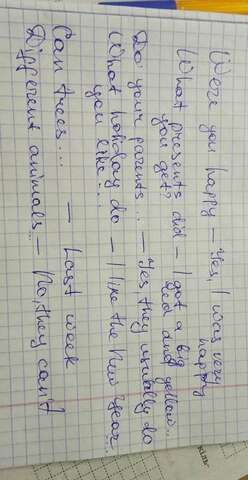 Were you happy - Yes, I was very happy
What presents did - I got a big
you get? red and yellow...
Do your parents... - Yes, they usually do
What holiday do - I like the New Year...
you like...
Can trees... - Last week
Different animals - No, they can't